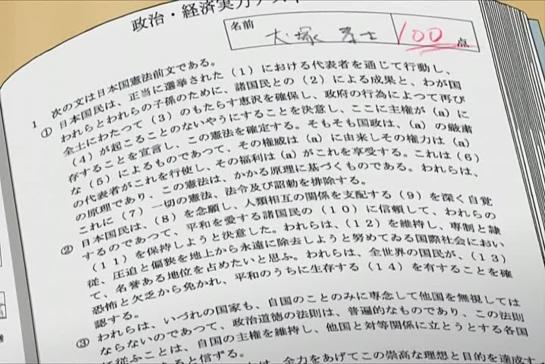 政治・経済実力テスト
名前
大塚
100点
1 次の文は日本国憲法前文である。
① 日本国民は、正当に選挙された(1)における代表者を通じて行動し、
われらとわれらの子孫のために、諸国民との(2)による成果と、わが国
全土にわたつて(3)のもたらす恵沢を確保し、政府の行為によつて再び
(4)が起ることのないやうにすることを決意し、ここに主権が(a)に
存することを宣言し、この憲法を確定する。そもそも国政は、(a)の厳粛
な(5)によるものであつて、その権威は(a)に由来しその権力は(a)
の代表者がこれを行使し、その福利は(a)がこれを享受する。これは(6)
の原理であり、この憲法は、かかる原理に基づくものである。われらは、
これに(7)一切の憲法、法令及び詔勅を排除する。
② 日本国民は、(8)を念願し、人類相互の関係を支配する(9)を深く自覚
するのであつて、平和を愛する諸国民の(10)に信頼して、われらの
(11)を保持しようと決意した。われらは、(12)を維持し、専制と隷
従、圧迫と偏狭を地上から永遠に除去しようと努めてゐる国際社会におい
て、名誉ある地位を占めたいと思ふ。われらは、全世界の国民が、(13)
恐怖と欠乏から免かれ、平和のうちに生存する(14)を有することを確
認する。
③ われらは、いづれの国家も、自国のことのみに専念して他国を無視しては
ならないのであつて、政治道徳の法則は、普遍的なものであり、この法則
に従ふことは、自国の主権を維持し、他国と対等関係に立とうとする各国
であると信ずる。
全力をあげてこの崇高な理想と目的を達成